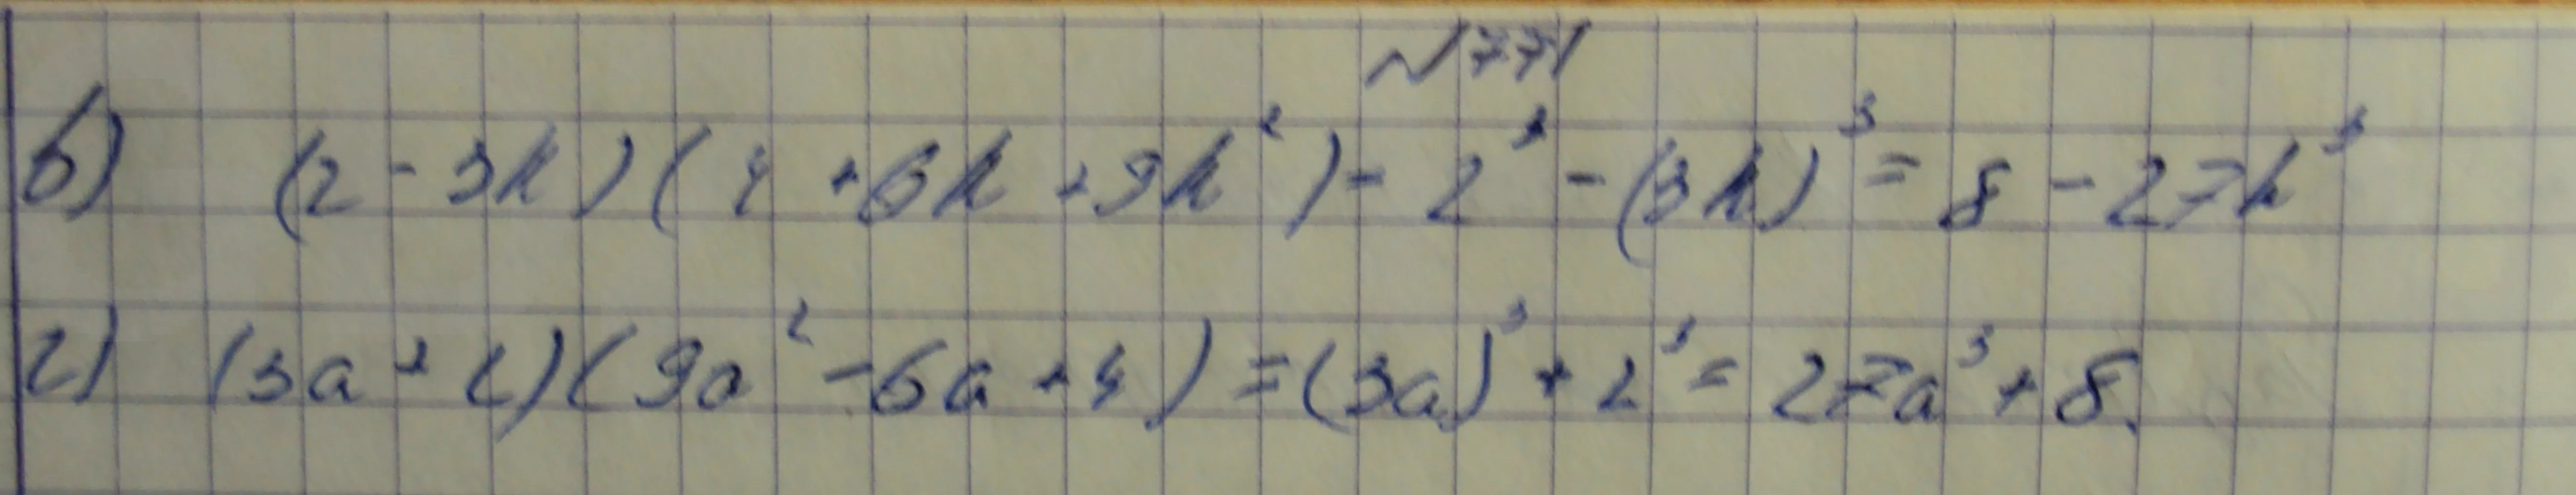 №771
б) (2 - 3k)(4 + 6k + 9k²) - 2³ - (3k)³ = 8 - 27k³
г) (3a + 2)(9a² - 6a + 4) = (3a)³ + 2³ = 27a³ + 8.